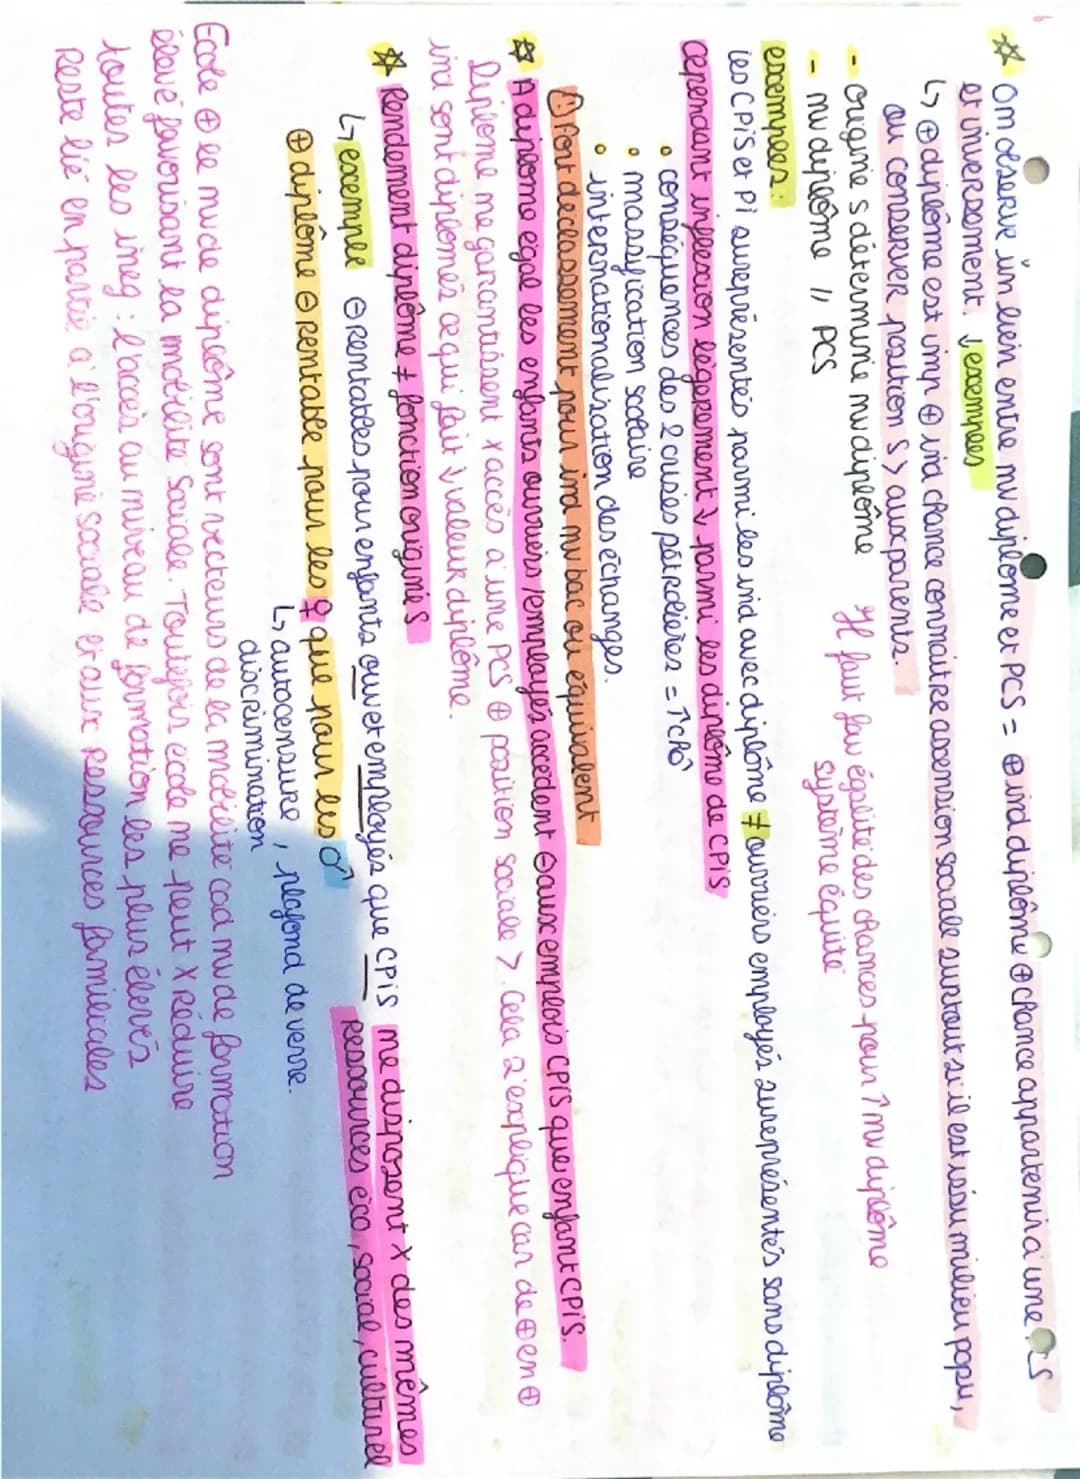 ☆ On observe un lien entre nv diplôme et PCS = ⊕ ind diplômé ⊕ chance appartenir à une PCS
et inversement. ↓ exemples
↳ ⊕ diplôme est imp ⊕ ind chance connaitre ascension sociale surtout si il est issu milieu popu,
ou conserver position S > aux parents.
- origine s détermine nv diplôme
- nv diplôme // PCS
Il faut fav égalité des chances pour ↑ nv diplôme
système équité
exemples:
les CPIS et PI surreprésentés parmi les ind avec diplôme ≠ ouvriers employés surreprésentés sans diplôme
cependant inflexion légèrement ↓ parmi les diplôme de CPIS
• conséquences des 2 crises pétrolières = ↑ chô
• massification scolaire
• internationalisation des échanges.
⚠ fort déclassement pour ind nv bac ou équivalent
☆ A diplome égal les enfants ouvriers / employés accèdent ⊖ aux emplois CPIS que enfant CPIS.
Diplome ne garantissent x accès à une PCS ⊕ position sociale >. Cela s'explique car de ⊕ en ⊕
ind sont diplomés ce qui fait ↓ valeur diplôme.
☆ Rendement diplôme ≠ fonction origine S
↳ exemple ⊖ rentables pour enfants ouv et employés que CPIS ne disposent x des mêmes
ressources éco, social, culturel
⊕ diplôme ⊖ rentable pour les ♀ que pour les ♂
↳ autocensure, plafond de verre.
discrimination
Ecole ⊕ le nv de diplôme sont vecteurs de la mobilité cad nv de formation
élevé favorisant la mobilité sociale. Toutefois école ne peut x réduire
toutes les ineg : l'accès au niveau de formation les plus élevés
reste lié en partie à l'origine sociale et aux ressources familiales